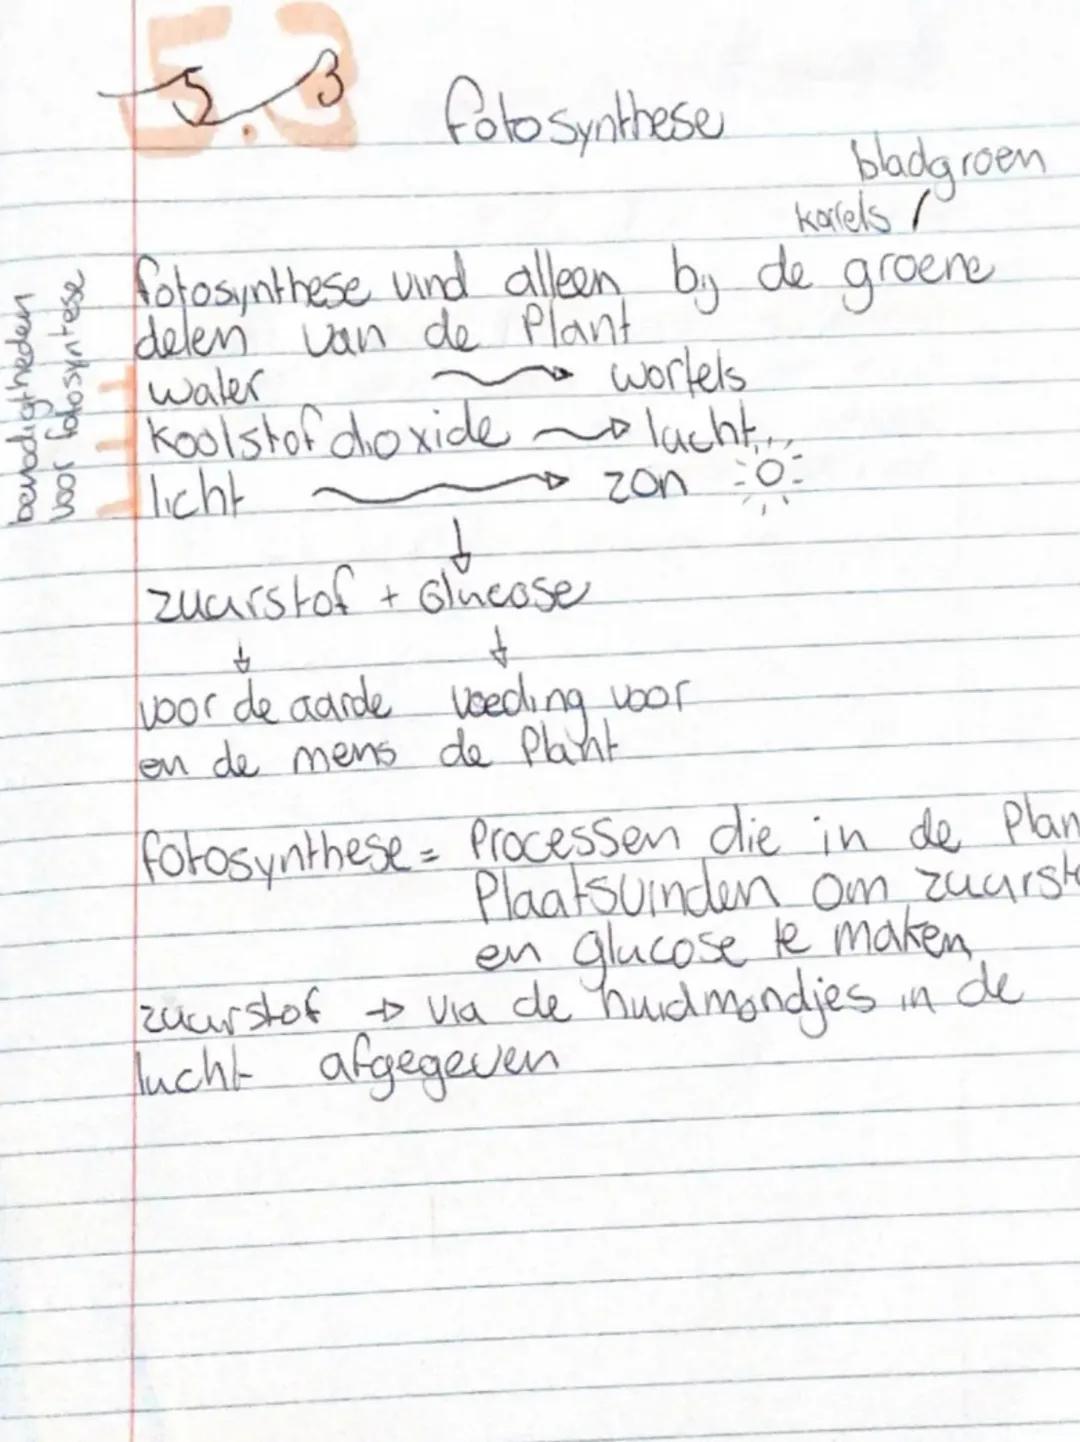 5.3
fotosynthese
bladgroen
korrels
fotosynthese vind alleen bij de groene
delen van de Plant
water → wortels
koolstofdioxide → lucht
licht → zon
↓
zuurstof + Glucose
↓ ↓
voor de aarde voeding voor
en de mens de Plant
fotosynthese = Processen die in de Plan
Plaatsvinden om zuurst
en glucose te maken
zuurstof → via de huidmondjes in de
lucht afgegeven
benodigheden
voor fotosyntese